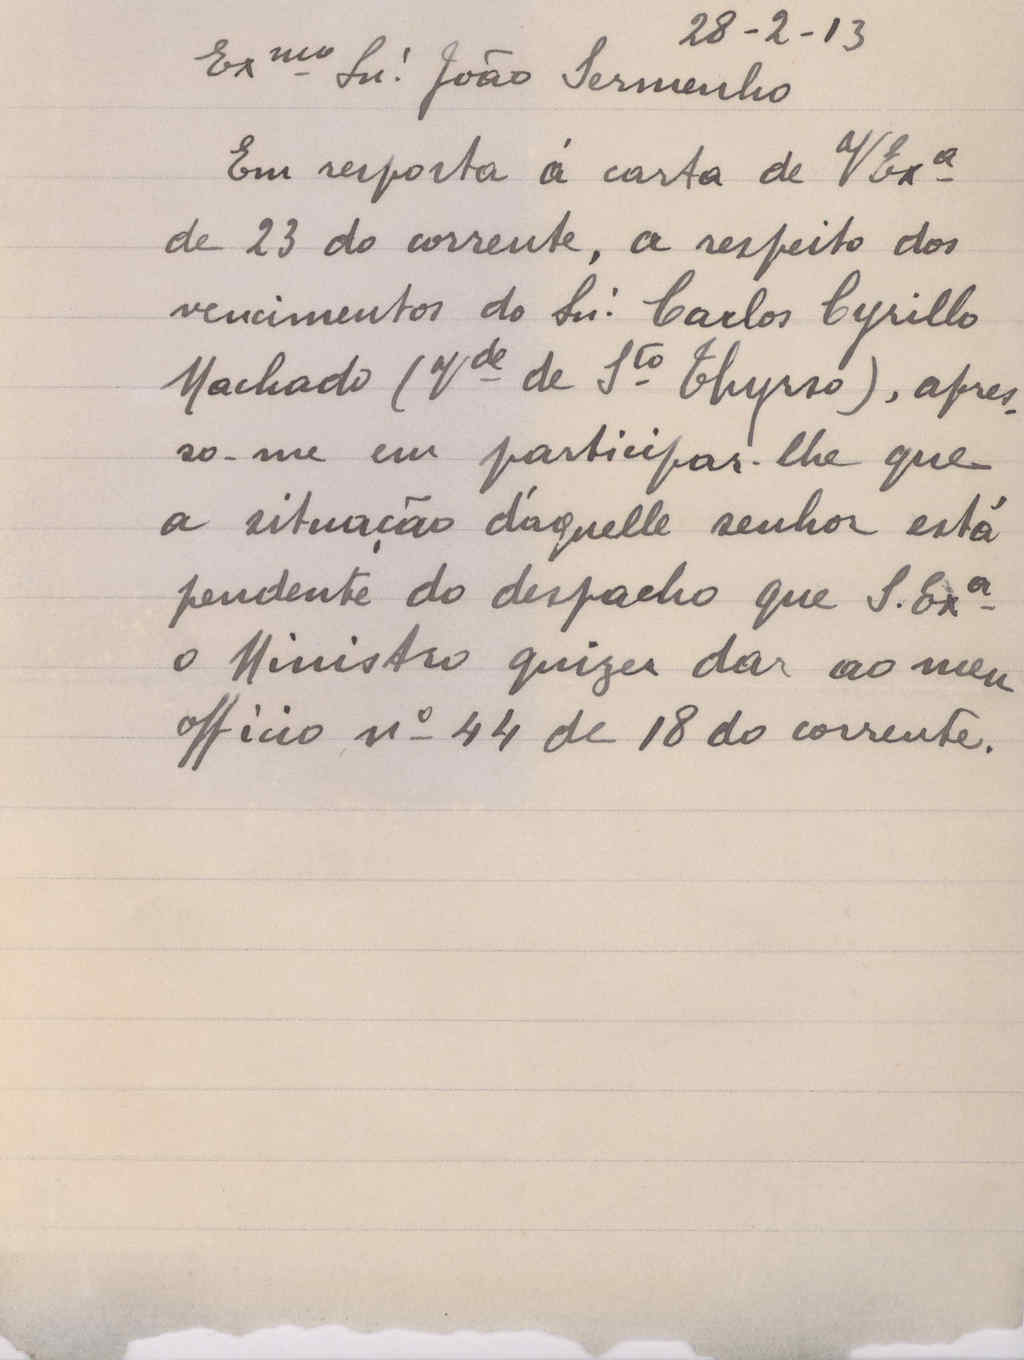 28-2-13
Exmo Snr. João Sermenho
Em resposta á carta de VExa
de 23 do corrente, a respeito dos
vencimentos do Snr. Carlos Cyrillo
Machado (Vde de Sto Thyrso), apres-
so-me em participar-lhe que
a situação d'aquelle senhor está
pendente do despacho que S. Exa
o Ministro quizer dar ao meu
officio nº 44 de 18 do corrente.